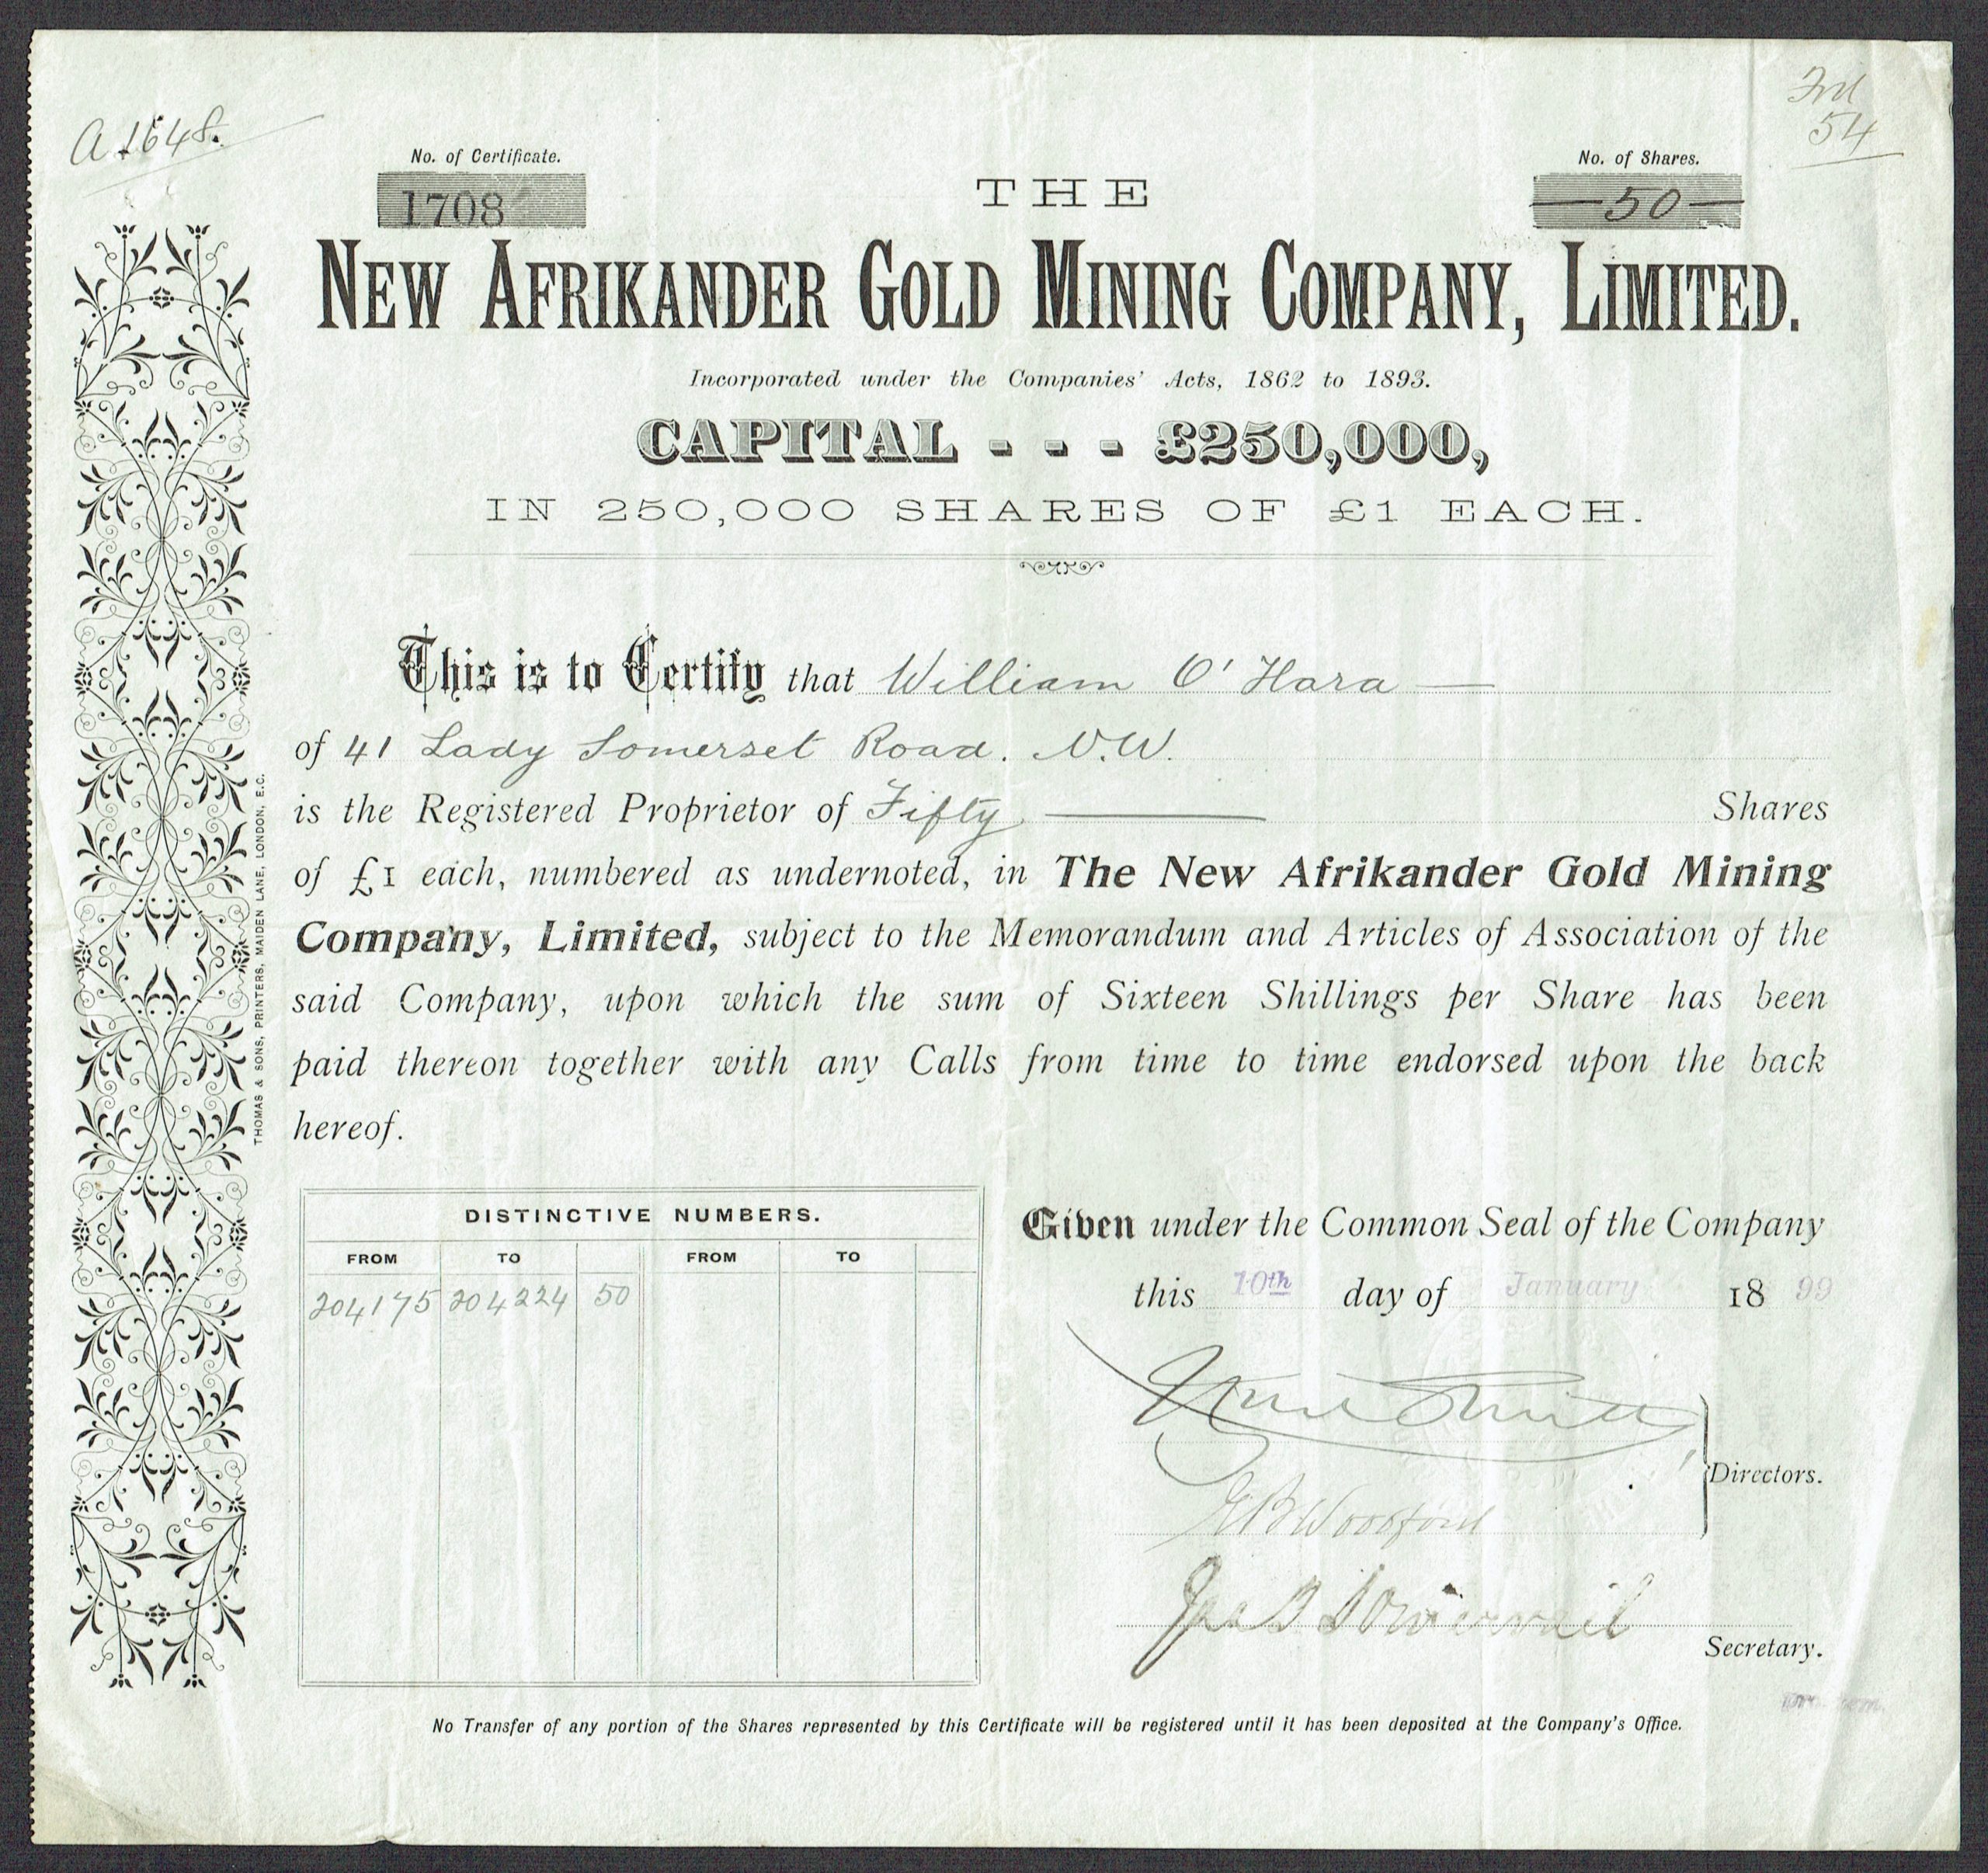 A 1648.
Fol
54
No. of Certificate.
1708
No. of Shares.
50
THE
NEW AFRIKANDER GOLD MINING COMPANY, LIMITED.
Incorporated under the Companies' Acts, 1862 to 1893.
CAPITAL - - - £250,000,
IN 250,000 SHARES OF £1 EACH.
This is to Certify that William O'Hara
of 41 Lady Somerset Road. N.W.
is the Registered Proprietor of Fifty Shares
of £1 each, numbered as undernoted, in The New Afrikander Gold Mining
Company, Limited, subject to the Memorandum and Articles of Association of the
said Company, upon which the sum of Sixteen Shillings per Share has been
paid thereon together with any Calls from time to time endorsed upon the back
hereof.
THOMAS & SONS, PRINTERS, MAIDEN LANE, LONDON, E.C.
DISTINCTIVE NUMBERS.
FROM TO FROM TO
204175 204224 50
Given under the Common Seal of the Company
this 10th day of January 1899
Directors.
Woodford
Secretary.
No Transfer of any portion of the Shares represented by this Certificate will be registered until it has been deposited at the Company's Office.